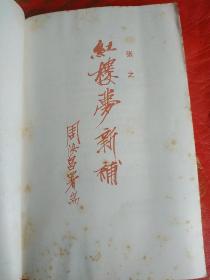 张之
紅樓夢新補
周汝昌署耑